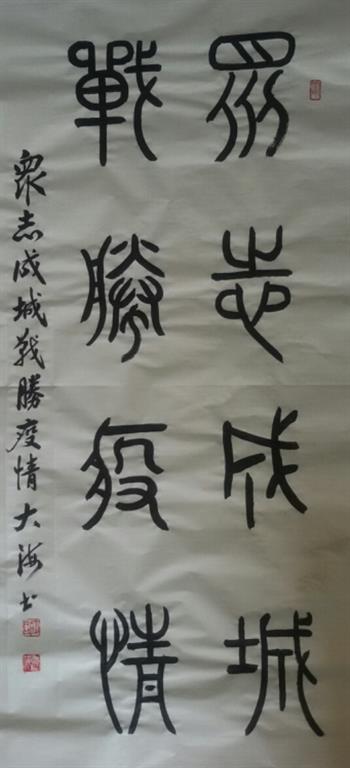 眾志成城
戰勝疫情
眾志成城戰勝疫情大海书